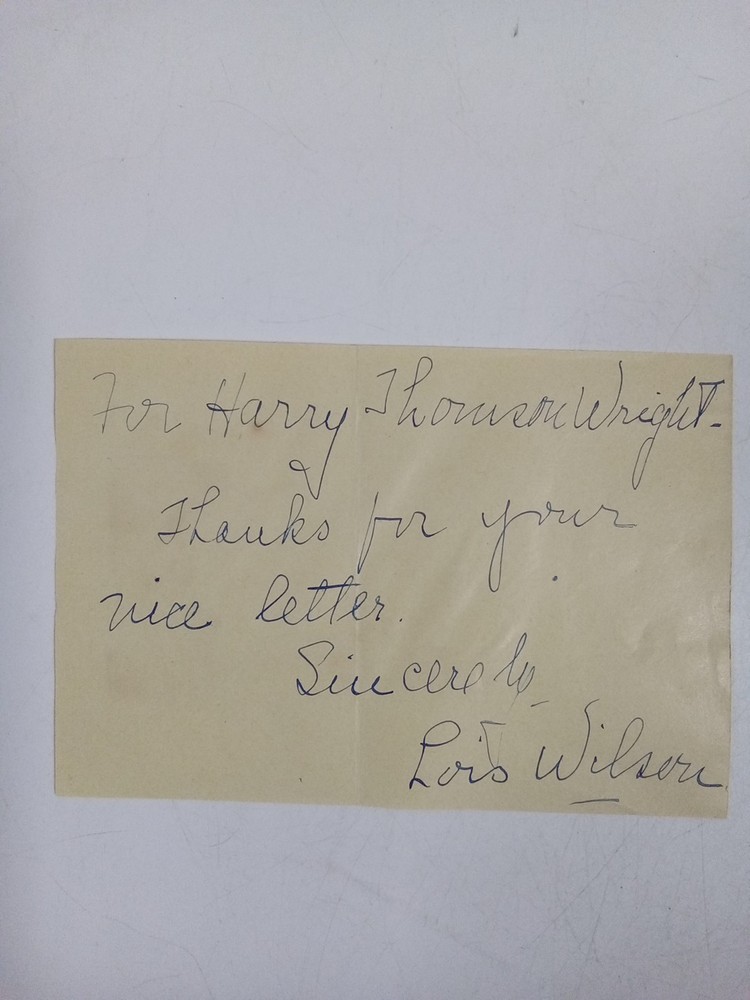 For Harry Thomson Wright-
&
Thanks for your
nice letter.
Sincerely
Lois Wilson